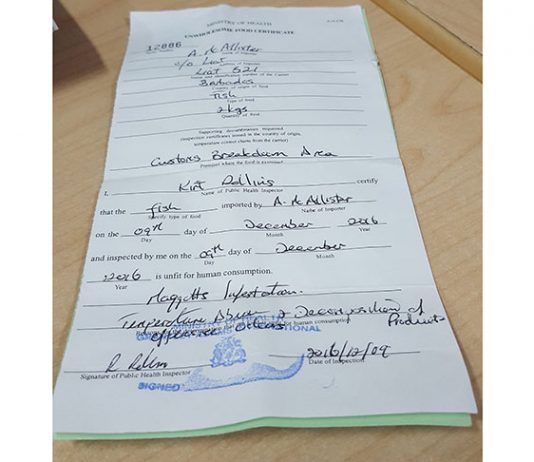 MINISTRY OF HEALTH
UNWHOLESOME FOOD CERTIFICATE
12886
A. McAllister
Name of Importer
c/o Liat
Address of Importer
Liat 521
Name and identification number of the Carrier
Barbados
Country of origin of food
Fish
Type of food
2 kgs
Quantity of food
Supporting documentation required
(inspection certificates issued in the country of origin,
temperature control charts from the carrier)
Customs Breakdown Area
Premises where the food is examined
I, Kirt Rollins certify
Name of Public Health Inspector
that the fish imported by A. McAllister
Specify type of food Name of Importer
on the 09th day of December 2016
Day Month Year
and inspected by me on the 09th day of December
Day Month
2016 is unfit for human consumption.
Year
Maggotts Infestation.
Temperature Abuse & Decomposition of Product
Offensive Odours
for human consumption
R Rollins 2016/12/09
Signature of Public Health Inspector Date of Inspection
SIGNED